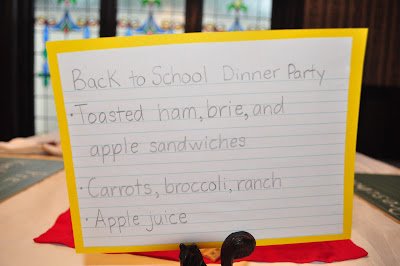 Back to School Dinner Party
· Toasted ham, brie, and
apple sandwiches
· Carrots, broccoli, ranch
· Apple juice